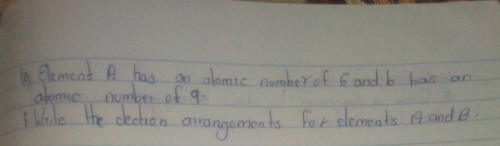 Element A has an atomic number of 6 and b has an
atomic number of 9.
i Write the election arrangements for elements A and B.